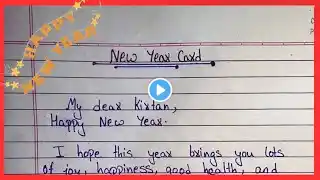 HAPPY
NEW YEAR
New Year Card
My dear Kirtan,
Happy New Year.
I hope this year brings you lots
of joy, happiness, good health, and